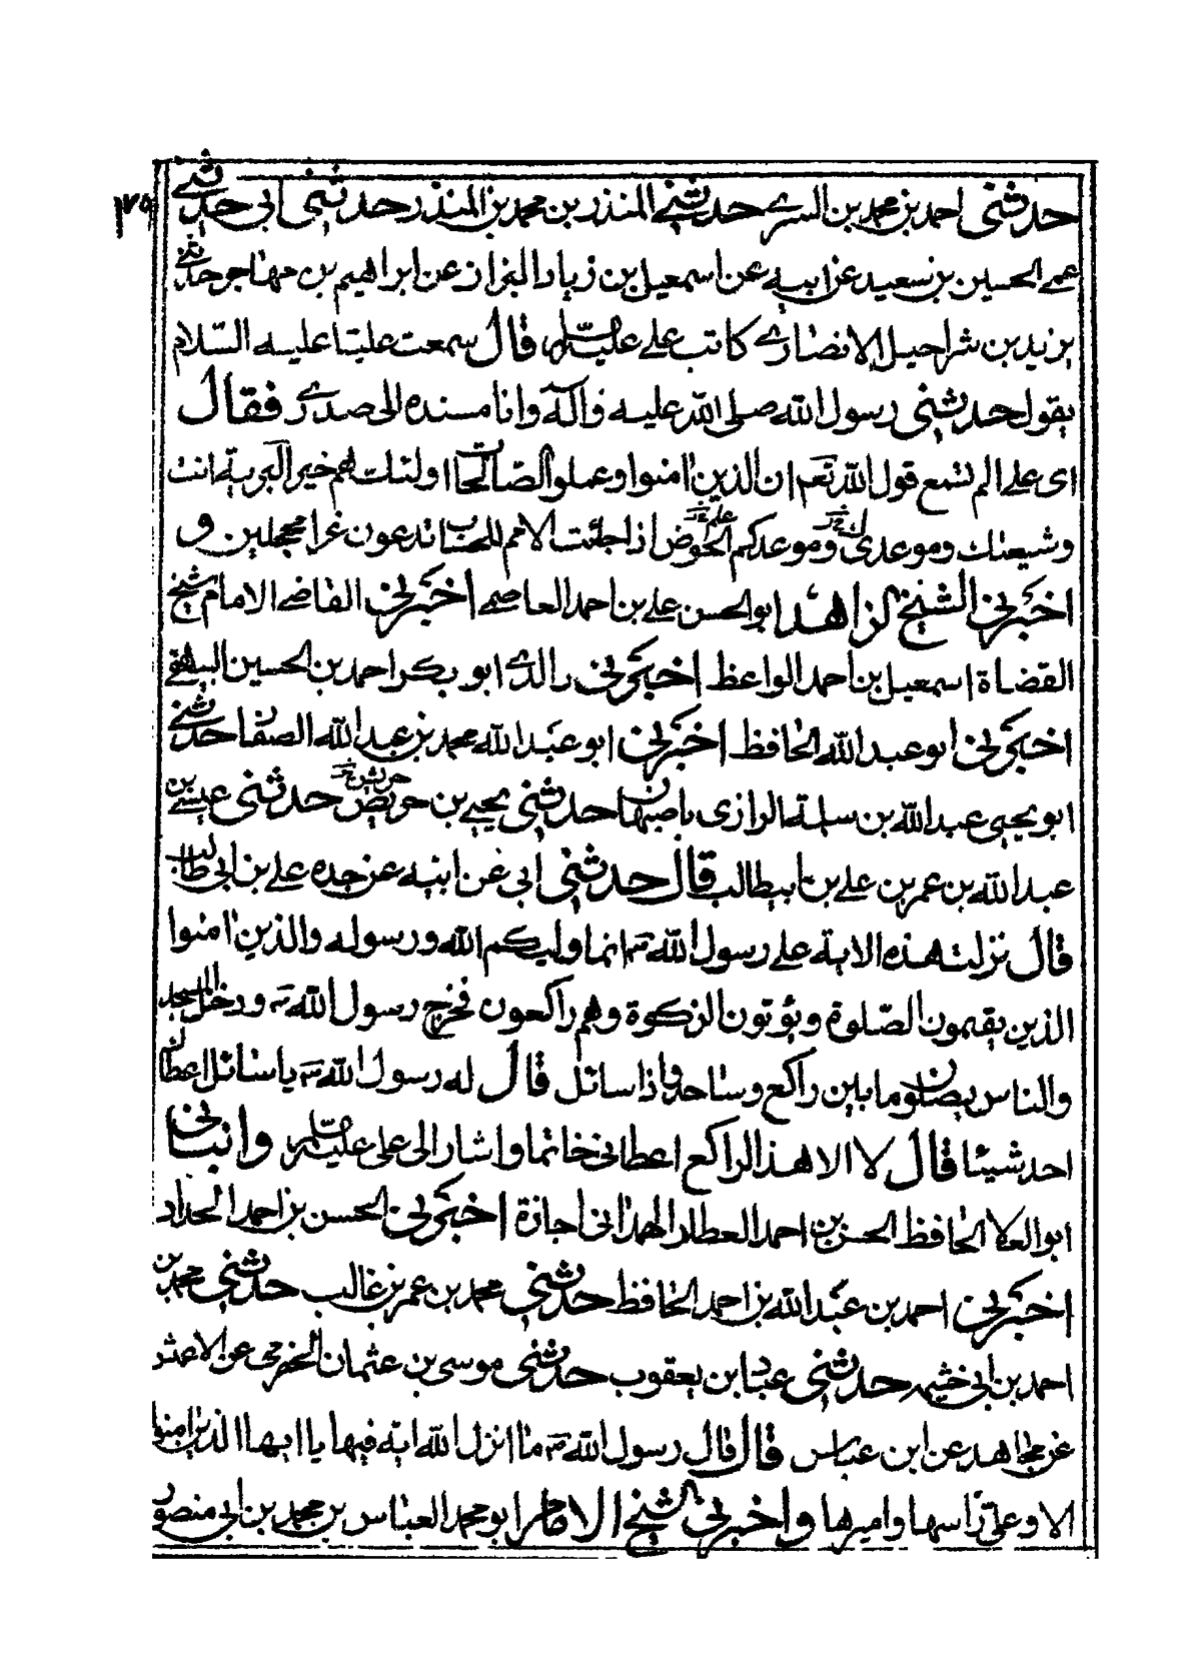 حدثنى احمد بن محمد بن السرى حدثنى المنذر بن محمد بن المنذر حدثنى ابى حدثنى
عمى الحسين بن سعيد عن ابيه عن اسمعيل بن زياد البزاز عن ابراهيم بن مهاجر حدثنى
يزيد بن شراحيل الانصارى كاتب على عليه السلم قال سمعت عليا عليه السلام
يقول حدثنى رسول الله صلى الله عليه واله وانا مسنده الى صدرى فقال
اى على الم تسمع قول الله تعم ان الذين امنوا وعملوا الصالحات اولئك هم خير البرية انت
وشيعتك وموعدى وموعدكم الحوض اذا جائت الامم للحساب تدعون غرا محجلين و
اخبرنى الشيخ الزاهد ابو الحسن على بن احمد العاصمى اخبرنى القاضى الامام شيخ
القضاة اسمعيل بن احمد الواعظ اخبرنى والدى ابو بكر احمد بن الحسين البيهقى
اخبرنى ابو عبد الله الحافظ اخبرنى ابو عبد الله محمد بن عبد الله الصفار حدثنى
ابو يحيى عبد الله بن سلمة الرازى باصبهان حدثنى يحيى بن حريض حدثنى عيسى بن
عبد الله بن عمر بن على بن ابيطالب قال حدثنى ابى عن ابيه عن جده على بن ابى طالب
قال نزلت هذه الاية على رسول الله ص انما وليكم الله ورسوله والذين امنوا
الذين يقيمون الصلوة ويؤتون الزكوة وهم راكعون فخرج رسول الله ص ودخل المسجد
والناس يصلون وما بين راكع وساجد واذا سائل قال له رسول الله ص يا سائل اعطاك
احد شيئا قال لا الا هذا الراكع اعطانى خاتما واشار الى على عليه السلم وانبانى
ابو العلا الحافظ الحسن بن احمد العطار الهمدانى اجازة اخبرنى الحسن بن احمد الحداد
اخبرنى احمد بن عبد الله بن احمد الحافظ حدثنى محمد بن عمر بن غالب حدثنى محمد بن
احمد بن ابى خثيمه حدثنى عباد بن يعقوب حدثنى موسى بن عثمان الحضرمى عن الاعمش
عن مجاهد عن ابن عباس قال قال رسول الله ص ما انزل الله اية فيها يا ايها الذين امنوا
الا وعلى راسها واميرها واخبرنى الشيخ الامام ابو محمد العباس بن محمد بن ابى منصور